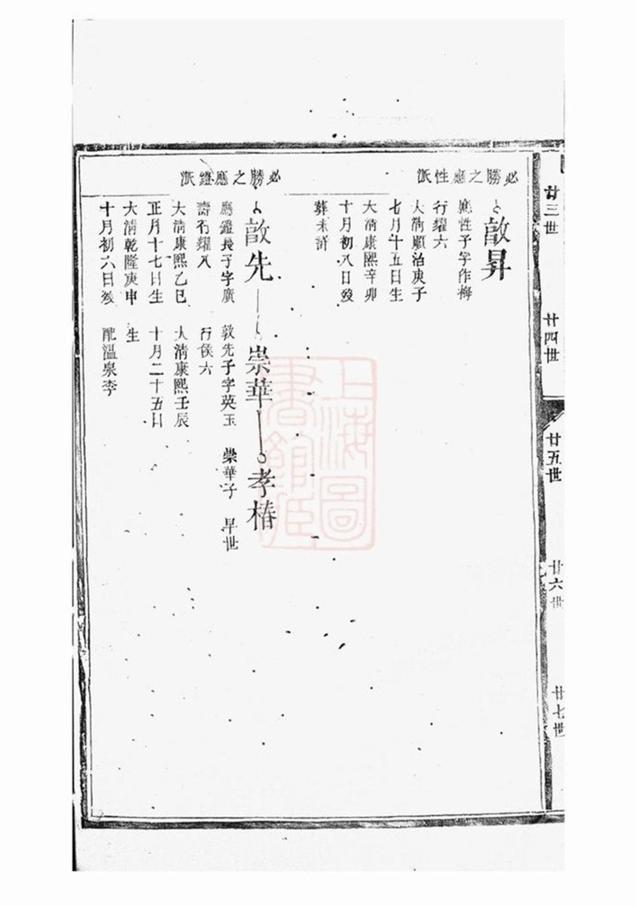 廿三世
廿四世
廿五世
廿六世
廿七世
必勝之應性派
敿昇
應性子字作梅
行耀六
大淸順治庚子
七月十五日生
大淸康熙辛卯
十月初八日歿
葬未詳
必勝之應鐙派
敿先
崇華
孝椿
應鐙長子字廣
壽行耀八
大淸康熙乙巳
正月十七日生
大淸乾隆庚申
十月初六日歿
敦先子字英玉
行侯六
大淸康熙壬辰
十月二十五日
生
配溫泉李
崇華子
早世
上海圖
書館藏